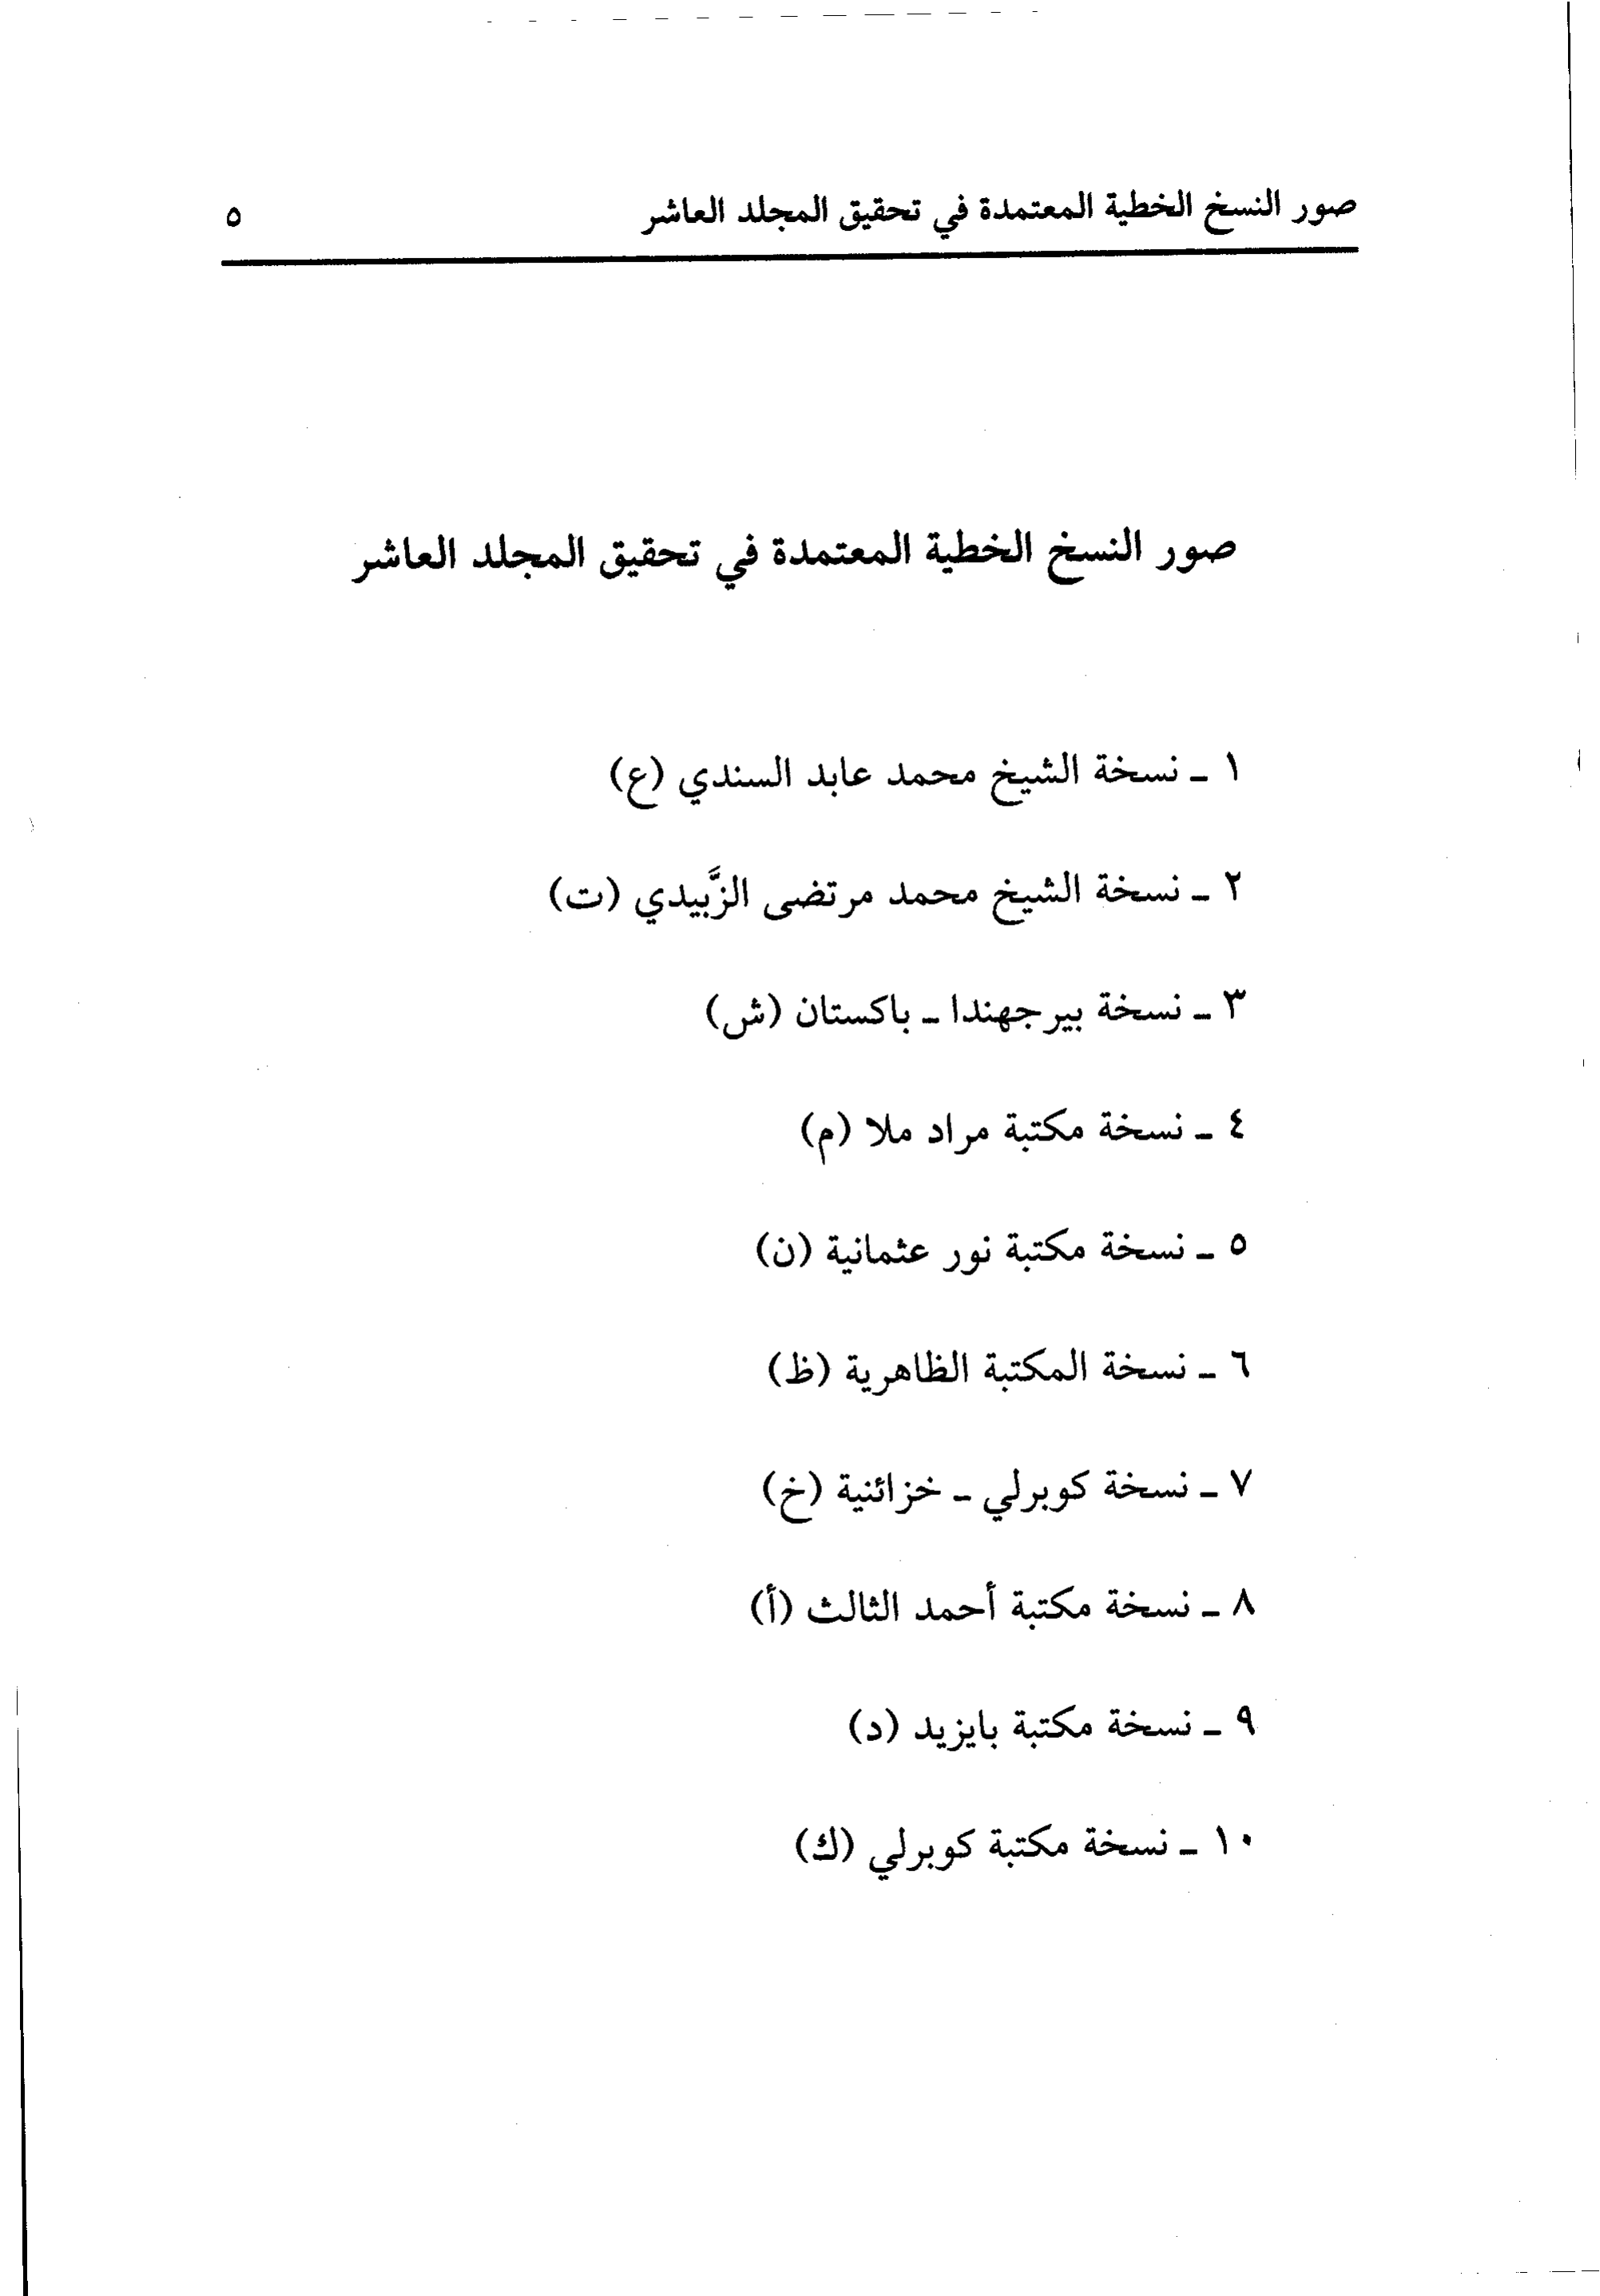 صور النسخ الخطية المعتمدة في تحقيق المجلد العاشر ٥
صور النسخ الخطية المعتمدة في تحقيق المجلد العاشر
١ ـ نسخة الشيخ محمد عابد السندي (ع)
٢ ـ نسخة الشيخ محمد مرتضى الزَّبيدي (ت)
٣ ـ نسخة بيرجهندا ـ باكستان (ش)
٤ ـ نسخة مكتبة مراد ملا (م)
٥ ـ نسخة مكتبة نور عثمانية (ن)
٦ ـ نسخة المكتبة الظاهرية (ظ)
٧ ـ نسخة كوبرلي ـ خزائنية (خ)
٨ ـ نسخة مكتبة أحمد الثالث (أ)
٩ ـ نسخة مكتبة بايزيد (د)
١٠ ـ نسخة مكتبة كوبرلي (ك)